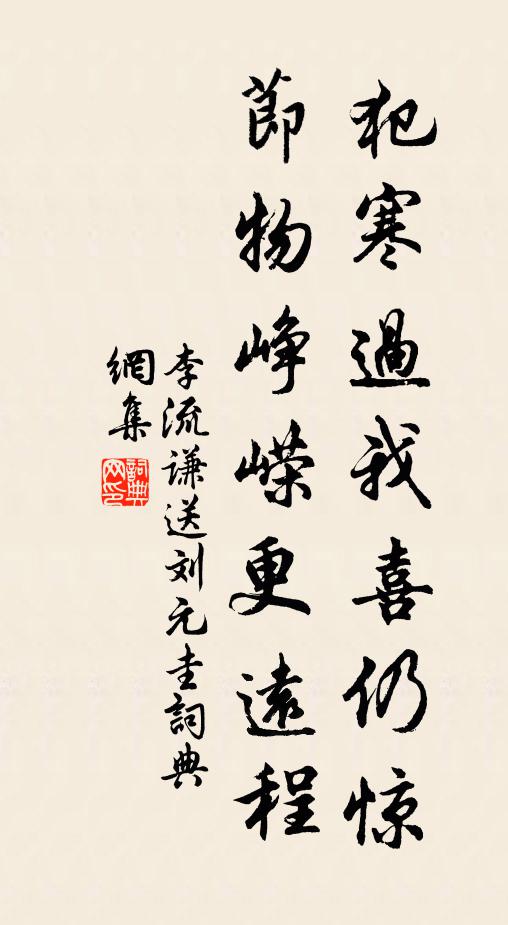 犯寒過我喜仍惊
節物崢嶸更遠程
李流謙送刘元圭詞典
網集
詞典网印